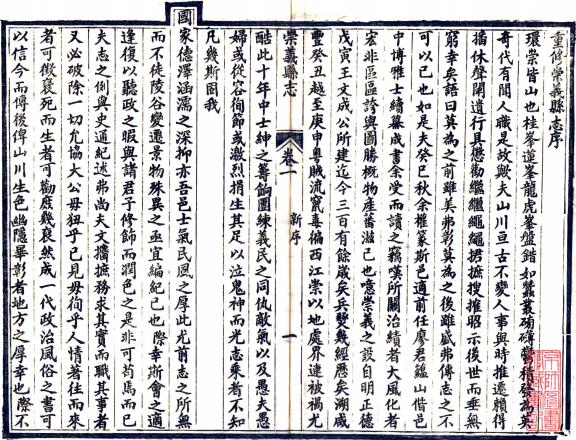 重修崇義縣志序
環崇皆山也桂峯蓮峯龍虎峯盤錯如蠶叢磅礴鬱積發為英
奇代有聞人職是故歟夫山川亘古不變人事與時推遷賴得
播休聲闡遺行具懲勸繼繼繩繩捃摭搜摧昭示後世而垂無
窮幸矣語曰莫為之前雖美弗彰莫為之後雖盛弗傳志之不
可以已也如是夫癸已秋余權篆斯邑適前任廖君蘊山偕邑
中博雅士續纂成書余受而讀之竊嘆所關治績者大風化者
宏非區區誇輿圖勝概物產蕃滋已也噫崇義之設自明正德
戊寅王文成公所建迄今三百有餘歲矣兵燹幾經歷矣溯咸
豐癸丑越至庚申粵賊流竄毒徧西江崇以地處界連被禍尤
崇義縣志
卷一
新序
一
酷此十年中士紳之籌餉團練義民之同仇敵氣以及愚夫愚
婦或從容徇節或激烈捐生其足以泣鬼神而光志乘者不知
凡幾斯固我
國家德澤涵濡之深抑亦吾邑士氣民風之厚此光前志之所無
而不徒陵谷變遷景物殊異之亟宜編紀已也際幸斯會之適
逢復以聽政之暇與諸君子修飾而潤色之是非可苟焉而已
夫志之例與史通紀述弗尚夫文摭摭務求其實而職其事者
又必破除一切允協大公毋狃乎己見毋徇乎人情著往而來
者可徵褒死而生者可勸庶幾裒然成一代政治風俗之書可
以信今而傳後俾山川生色幽隱畢彰者地方之厚幸也際不